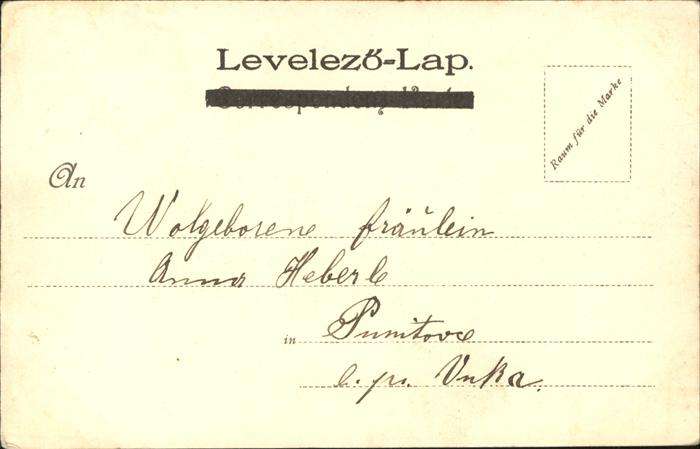 Levelező-Lap.
Correspondenz-Karte
Raum für die Marke
An
Wolgeborene fräulein
Anna Heberle
in Punitovce
l. p. Vuka.